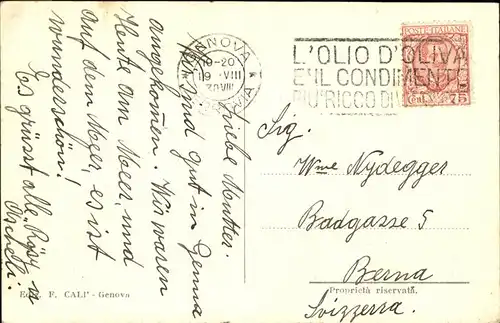 Liebe Mutter.
Wir sind gut in Genua
angekomen. Wir waren
Heute am Meer, und
auf dem Meer, es ist
wunderschön!
Es grüsst alle, Rösy u
POSTE ITALIANE
Cent. 75
GENOVA
19-20
19 · VIII
L'OLIO D'OLIVA
E'IL CONDIMENTO
PIU'RICCO DI
Sig.
Wwe Nydegger
Badgasse 5
Berna
Svizzerra.
Ed. F. CALI' - Genova
Proprietà riservata.